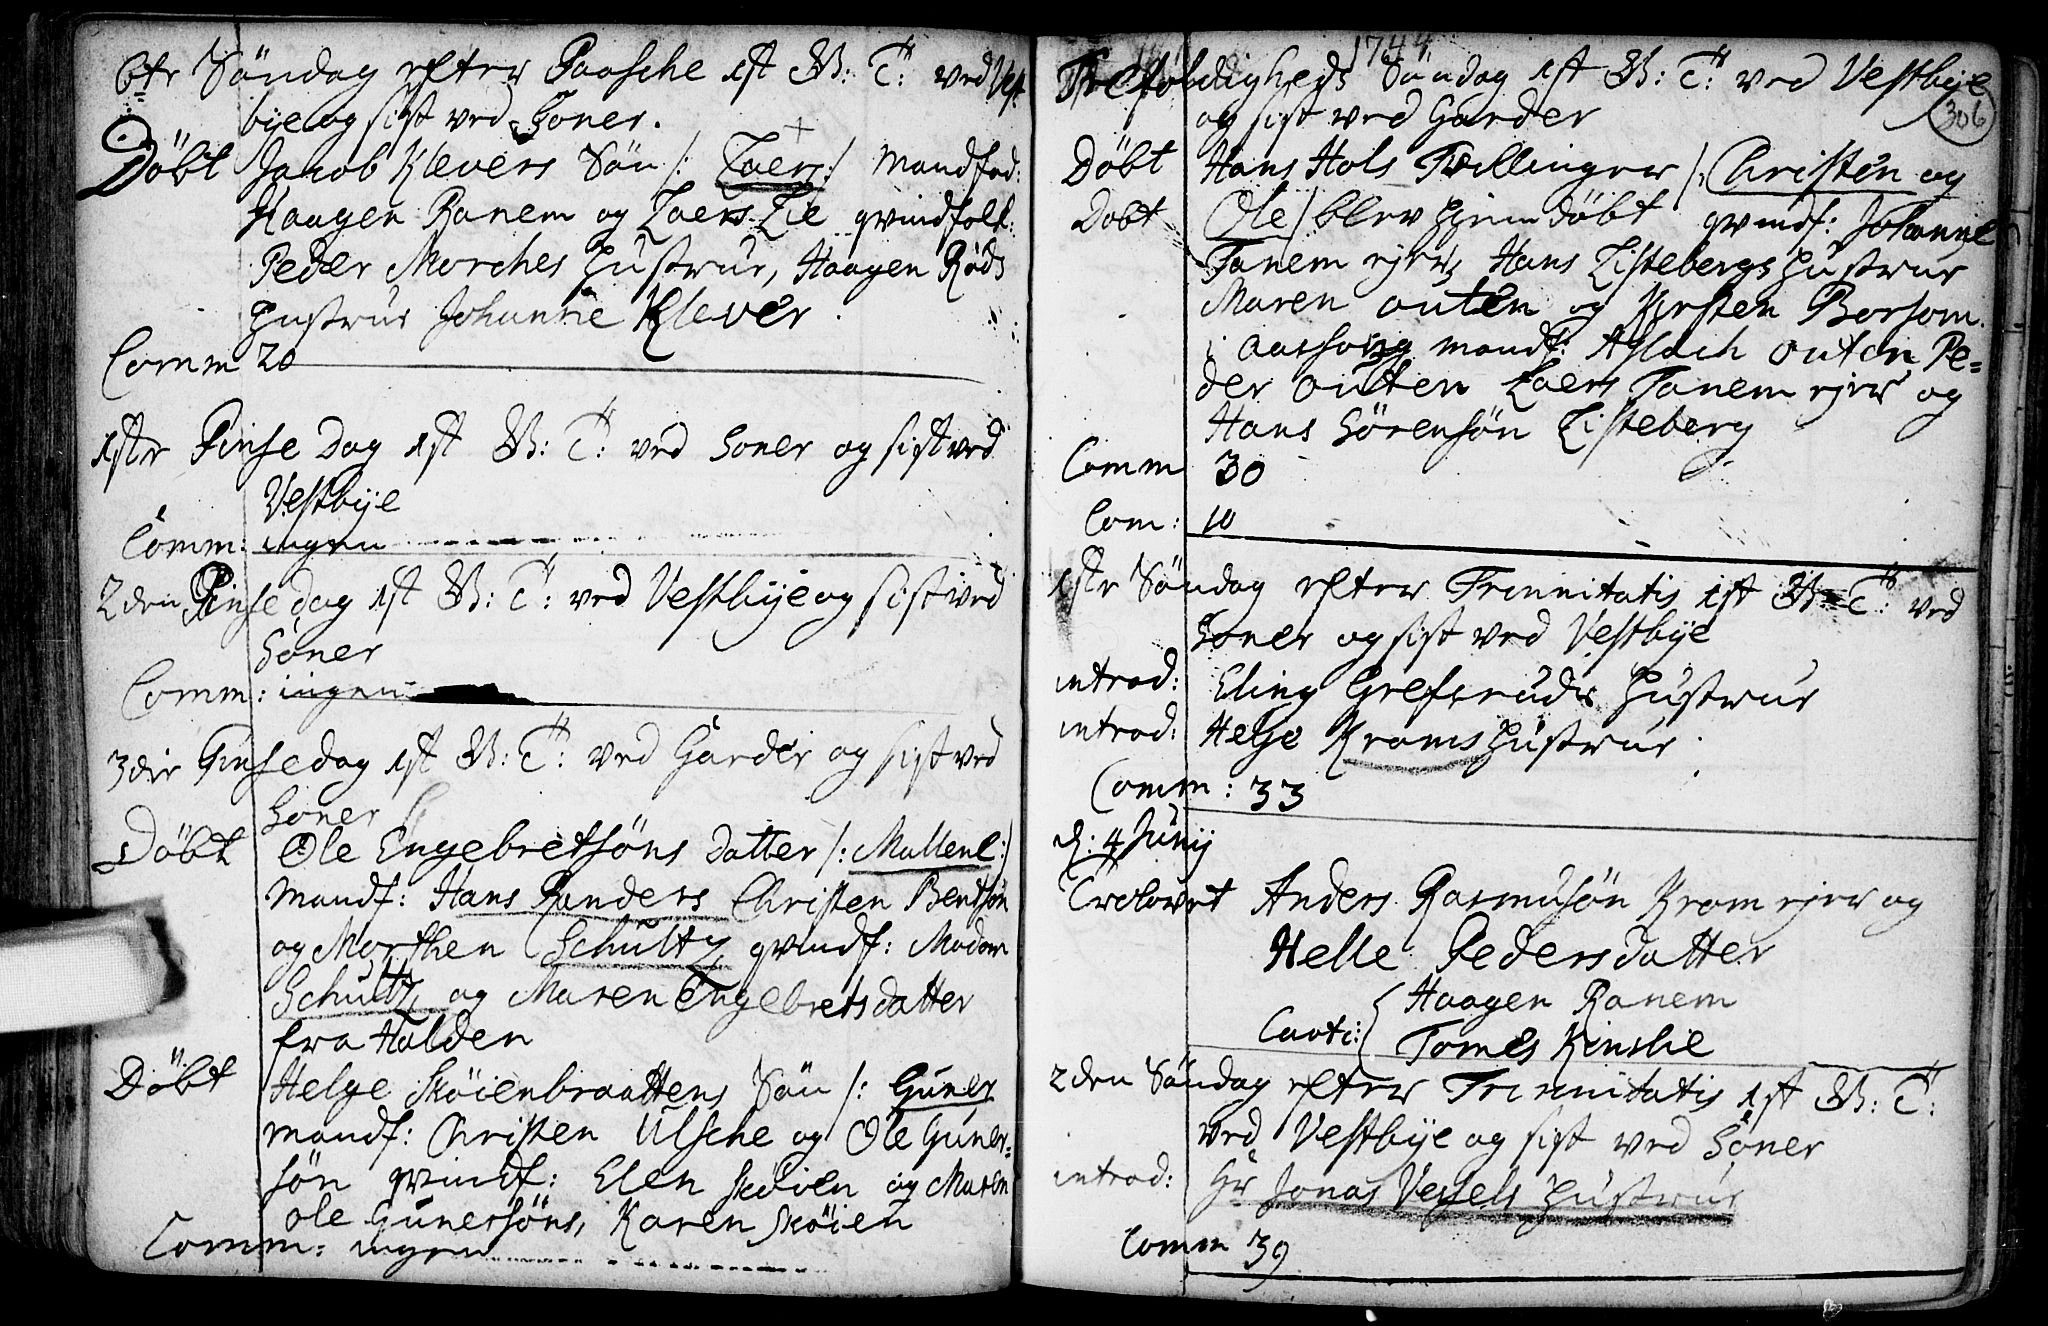 6te Söndag efter Paasche est B: T: ved Vest
bye og sist ved Soner.
Döbt Jacob Klevers Sön /: Laers :/ Mandfad:
Haagen Ranem og Laers Lie qvindfolk:
Peder Morches Hustrue, Haagen Röds
Hustrue Johanne Klever.
Comm 20
1ste Pinse Dag est B: T: ved Soner og sist ved
Vestbye
Comm: ingen
2den Pinse dag est B: T: ved Vestbye og sist ved
Soner
Comm: ingen
3die Pinse dag est B: T: ved Garder og sist ved
Soner
Döbt Ole Engebretsöns datter /: Mallene :/
Mandf: Hans Randers Christen Bentsön
og Morthen Schultz qvindf: Madam
Schultz, og Maren Engebretsdatter
fra Halden
Döbt Helge Sköienbraattens Sön /: Guner
mandf: Christen Ulsche og Ole Guner-
sön qvindf: Elen Sköien og Maren
Ole Gunersöns, Karen Sköien
Comm: ingen
1744
306
Trefoldigheds Söndag est B: T: ved Vestbye
og sist ved Garder
Döbt Hans Hols Tvillinger /: Christen og
Döbt Ole / blev hjemdöbt qvindf: Johanne
Tanem ejer, Hans Listebergs Hustrue
Maren outen og Kirsten Borsom
i aashoug mandf: Aslach outen Pe=
der outen Laers Tanem ejer og
Hans Sörensön Listeberg
Comm 30
Com: 10
1ste Söndag efter Trinnitatis est B: T: ved
Soner og sist ved Vestbye
introd: Eling Grefsruds Hustrue
introd: Helge Kroms Hustrue
Comm: 33
d: 4 Junij
Trolovet Anders Rasmusön Krom ejer og
Helle Pedersdatter
Haagen Ranem
Cavt: Tomes Kinslie
2den Söndag efter Trinnitatis est B: T:
ved Vestbye og sist ved Soner
introd: Hr Jonas Vessels Hustrue
Comm 39